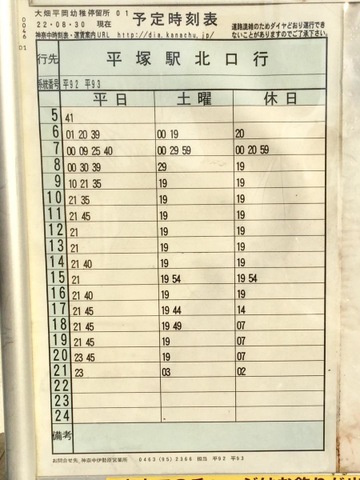 大畑平岡幼稚停留所 01
22-08-30 現在
予定時刻表
神奈中時刻表・運賃案内URL http://dia.kanachu.jp/
道路混雑のためダイヤどおり運行でき
ないことがありますのでご了承下さい。
0046
01
行先 平塚駅北口行
系統番号 平92 平93
平日 土曜 休日
5 41
6 01 20 39 00 19 20
7 00 09 25 40 00 29 59 00 20 59
8 00 30 39 29 19
9 10 21 35 19 19
10 21 35 19 19
11 21 45 19 19
12 21 19 19
13 21 19 19
14 21 40 19 19
15 21 19 54 19 54
16 21 40 19 19
17 21 45 19 44 14
18 21 45 19 49 07
19 21 45 19 07
20 23 45 19 07
21 23 03 02
22
23
24
備考
お問合せ先、神奈中伊勢原営業所 0463(95)2366 担当 平92 平93